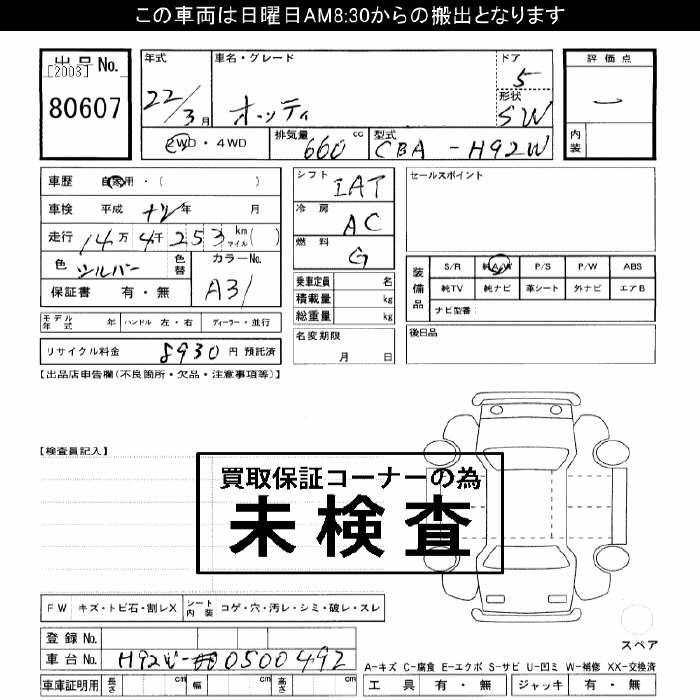 この車両は日曜日AM8:30からの搬出となります
出品No.
[2003]
80607
年式
22/3月
車名・グレード
オッティ
ドア
5
形状
SW
評価点
―
内装
2WD・4WD
排気量 660 cc
型式 CBA-H92W
車歴 自家用・( )
車検 平成 ナシ年 月
走行 14万4千253 km マイル( )
色 シルバー
色替
カラーNo.
A31
保証書 有・無
シフト
IAT
冷房
AC
燃料
G
乗車定員 名
積載量 kg
総重量 kg
セールスポイント
装備品
S/R 純A/W P/S P/W ABS
純TV 純ナビ 革シート 外ナビ エアB
ナビ型番:
モデル年式 年 ハンドル 左・右 ディーラー・並行
名変期限
月 日
後日品
リサイクル料金 8930 円 預託済
【出品店申告欄(不良箇所・欠品・注意事項等)】
【検査員記入】
買取保証コーナーの為
未検査
FW キズ・トビ石・割レX シート内装 コゲ・穴・汚レ・シミ・破レ・スレ
スペア
登録No.
車台No. H92W-0500492
車庫証明用 長さ 幅 高さ
A-キズ C-腐食 E-エクボ S-サビ U-凹ミ W-補修 XX-交換済
工具 有・無 ジャッキ 有・無